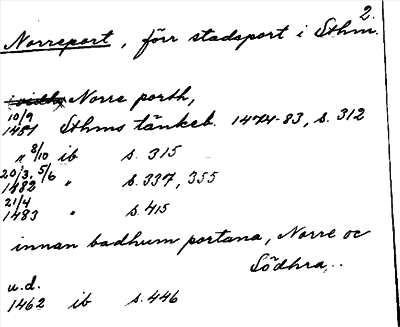 2.
Norreport, förr stadsport i Sthm.
Norre porth,
10/9
1481 Sthms tänkeb. 1474-83, s. 312
" 8/10 ib s. 315
20/3, 5/6
1482 " s. 337, 355
21/4
1483 " s. 415
innan badhum portana, Norre oc
Södhra,..
u.d.
1462 ib s. 446